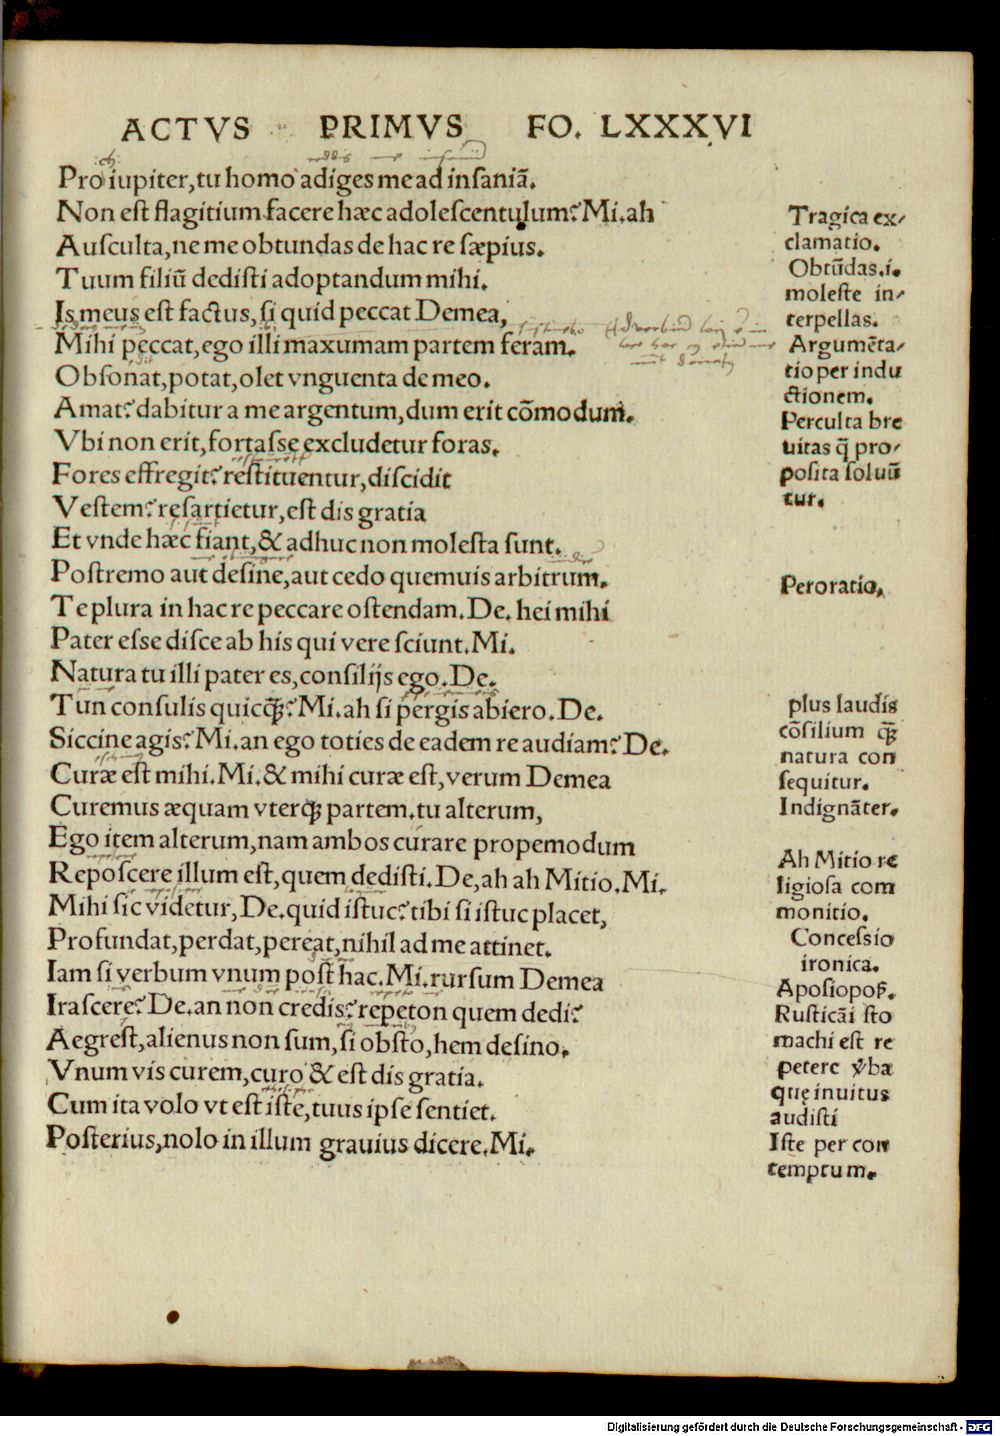 ACTVS PRIMVS FO. LXXXVI
Pro iupiter, tu homo adiges me ad insaniã.
Non est flagitium facere hæc adolescentulum? Mi. ah
Ausculta, ne me obtundas de hac re sæpius.
Tuum filiũ dedisti adoptandum mihi.
Is meus est factus, si quid peccat Demea,
Mihi peccat, ego illi maxumam partem feram.
Obsonat, potat, olet vnguenta de meo.
Amat? dabitur a me argentum, dum erit cõmodum.
Vbi non erit, fortasse excludetur foras.
Fores effregit? restituentur, discidit
Vestem? resartietur, est dis gratia
Et vnde hæc fiant, & adhuc non molesta sunt.
Postremo aut desine, aut cedo quemuis arbitrum.
Te plura in hac re peccare ostendam. De. hei mihi
Pater esse disce ab his qui vere sciunt. Mi.
Natura tu illi pater es, consilijs ego. De.
Tun consulis quicq̃? Mi. ah si pergis abiero. De.
Siccine agis? Mi. an ego toties de eadem re audiam? De.
Curæ est mihi. Mi. & mihi curæ est, verum Demea
Curemus æquam vterq; partem. tu alterum,
Ego item alterum, nam ambos curare propemodum
Reposcere illum est, quem dedisti. De, ah ah Mitio. Mi.
Mihi sic videtur, De. quid istuc? tibi si istuc placet,
Profundat, perdat, pereat, nihil ad me attinet.
Iam si verbum vnum post hac. Mi. rursum Demea
Irascere? De. an non credis? repeton quem dedi?
Aegrest, alienus non sum, si obsto, hem desino.
Vnum vis curem, curo & est dis gratia.
Cum ita volo vt est iste, tuus ipse sentiet.
Posterius, nolo in illum grauius dicere. Mi.
Tragica ex/
clamatio.
Obtũdas .i.
moleste in/
terpellas.
Argumẽta/
tio per indu
ctionem.
Perculta bre
uitas q̃ pro/
posita soluũ
tur.
Peroratio,
plus laudis
cõsilium q̃
natura con
sequitur.
Indignãter.
Ah Mitio re
ligiosa com
monitio.
Concessio
ironica.
Aposiopoſ.
Rusticãi sto
machi est re
petere v̾ba
quę inuitus
audisti
Iste per con
temptum.
Digitalisierung gefördert durch die Deutsche Forschungsgemeinschaft - DFG